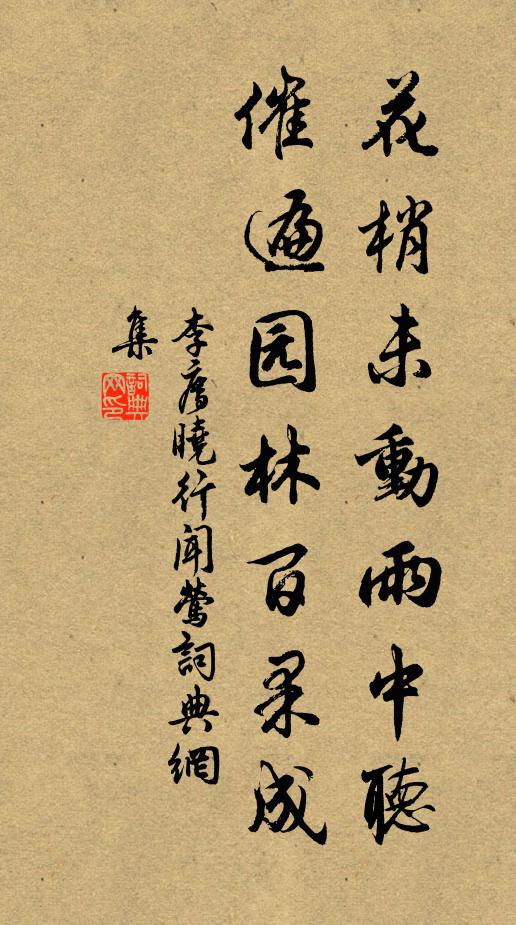 花梢未動雨中聽
催遍园林百果成
李廌曉行聞鶯詞典網
集
詞典
网印